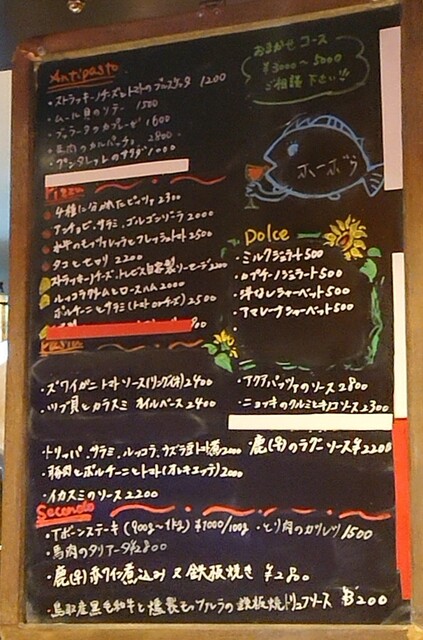 Antipasto
・ストラッキーノチーズとトマトのブルスケッタ 1200
・ムール貝のソテー 1500
・ブッラータのカプレーゼ 1600
・馬肉のカルパッチョ 2800
・プンタレッレのサラダ 1000
おまかせコース
¥3000〜5000
ご相談下さい!!
ホーボウ
Pizza
4種に分かれたピッツァ 2300
アンチョビ、サラミ、ゴルゴンゾーラ 2000
水牛のモッツァレラとフレッシュトマト 2500
タコとセロリ 2200
ストラッキーノチーズ、トレビス自家製ソーセージ 2200
ルッコラ生ハムとロースハム 2000
ポルチーニとサラミ(トマトorチーズ) 2500
Dolce
・ミルクジェラート 500
・カプチーノジェラート 500
・洋なしシャーベット 500
・アマレーナシャーベット 500
Pasta
・ズワイガニトマトソース(リングイネ) 2400
・ツブ貝とカラスミ オイルベース 2400
・アクアパッツァのソース 2800
・ニョッキのクルミとキノコソース 2300
・トリッパ、サラミ、ルッコラ、ウズラ豆トマト煮 2000
・鹿(牛)のラグーソース ¥2200
・豚肉とポルチーニとトマト(オレキエッテ) 2000
・イカスミのソース 2200
Secondo
・Tボーンステーキ (900g〜1kg) ¥1000/100g
・とり肉のカツレツ 1500
・馬肉のタリアータ ¥2800
・鹿(牛)赤ワイン煮込み 又 鉄板焼き
・鳥取産黒毛和牛と燻製モッツァレラの鉄板焼トリュフソース